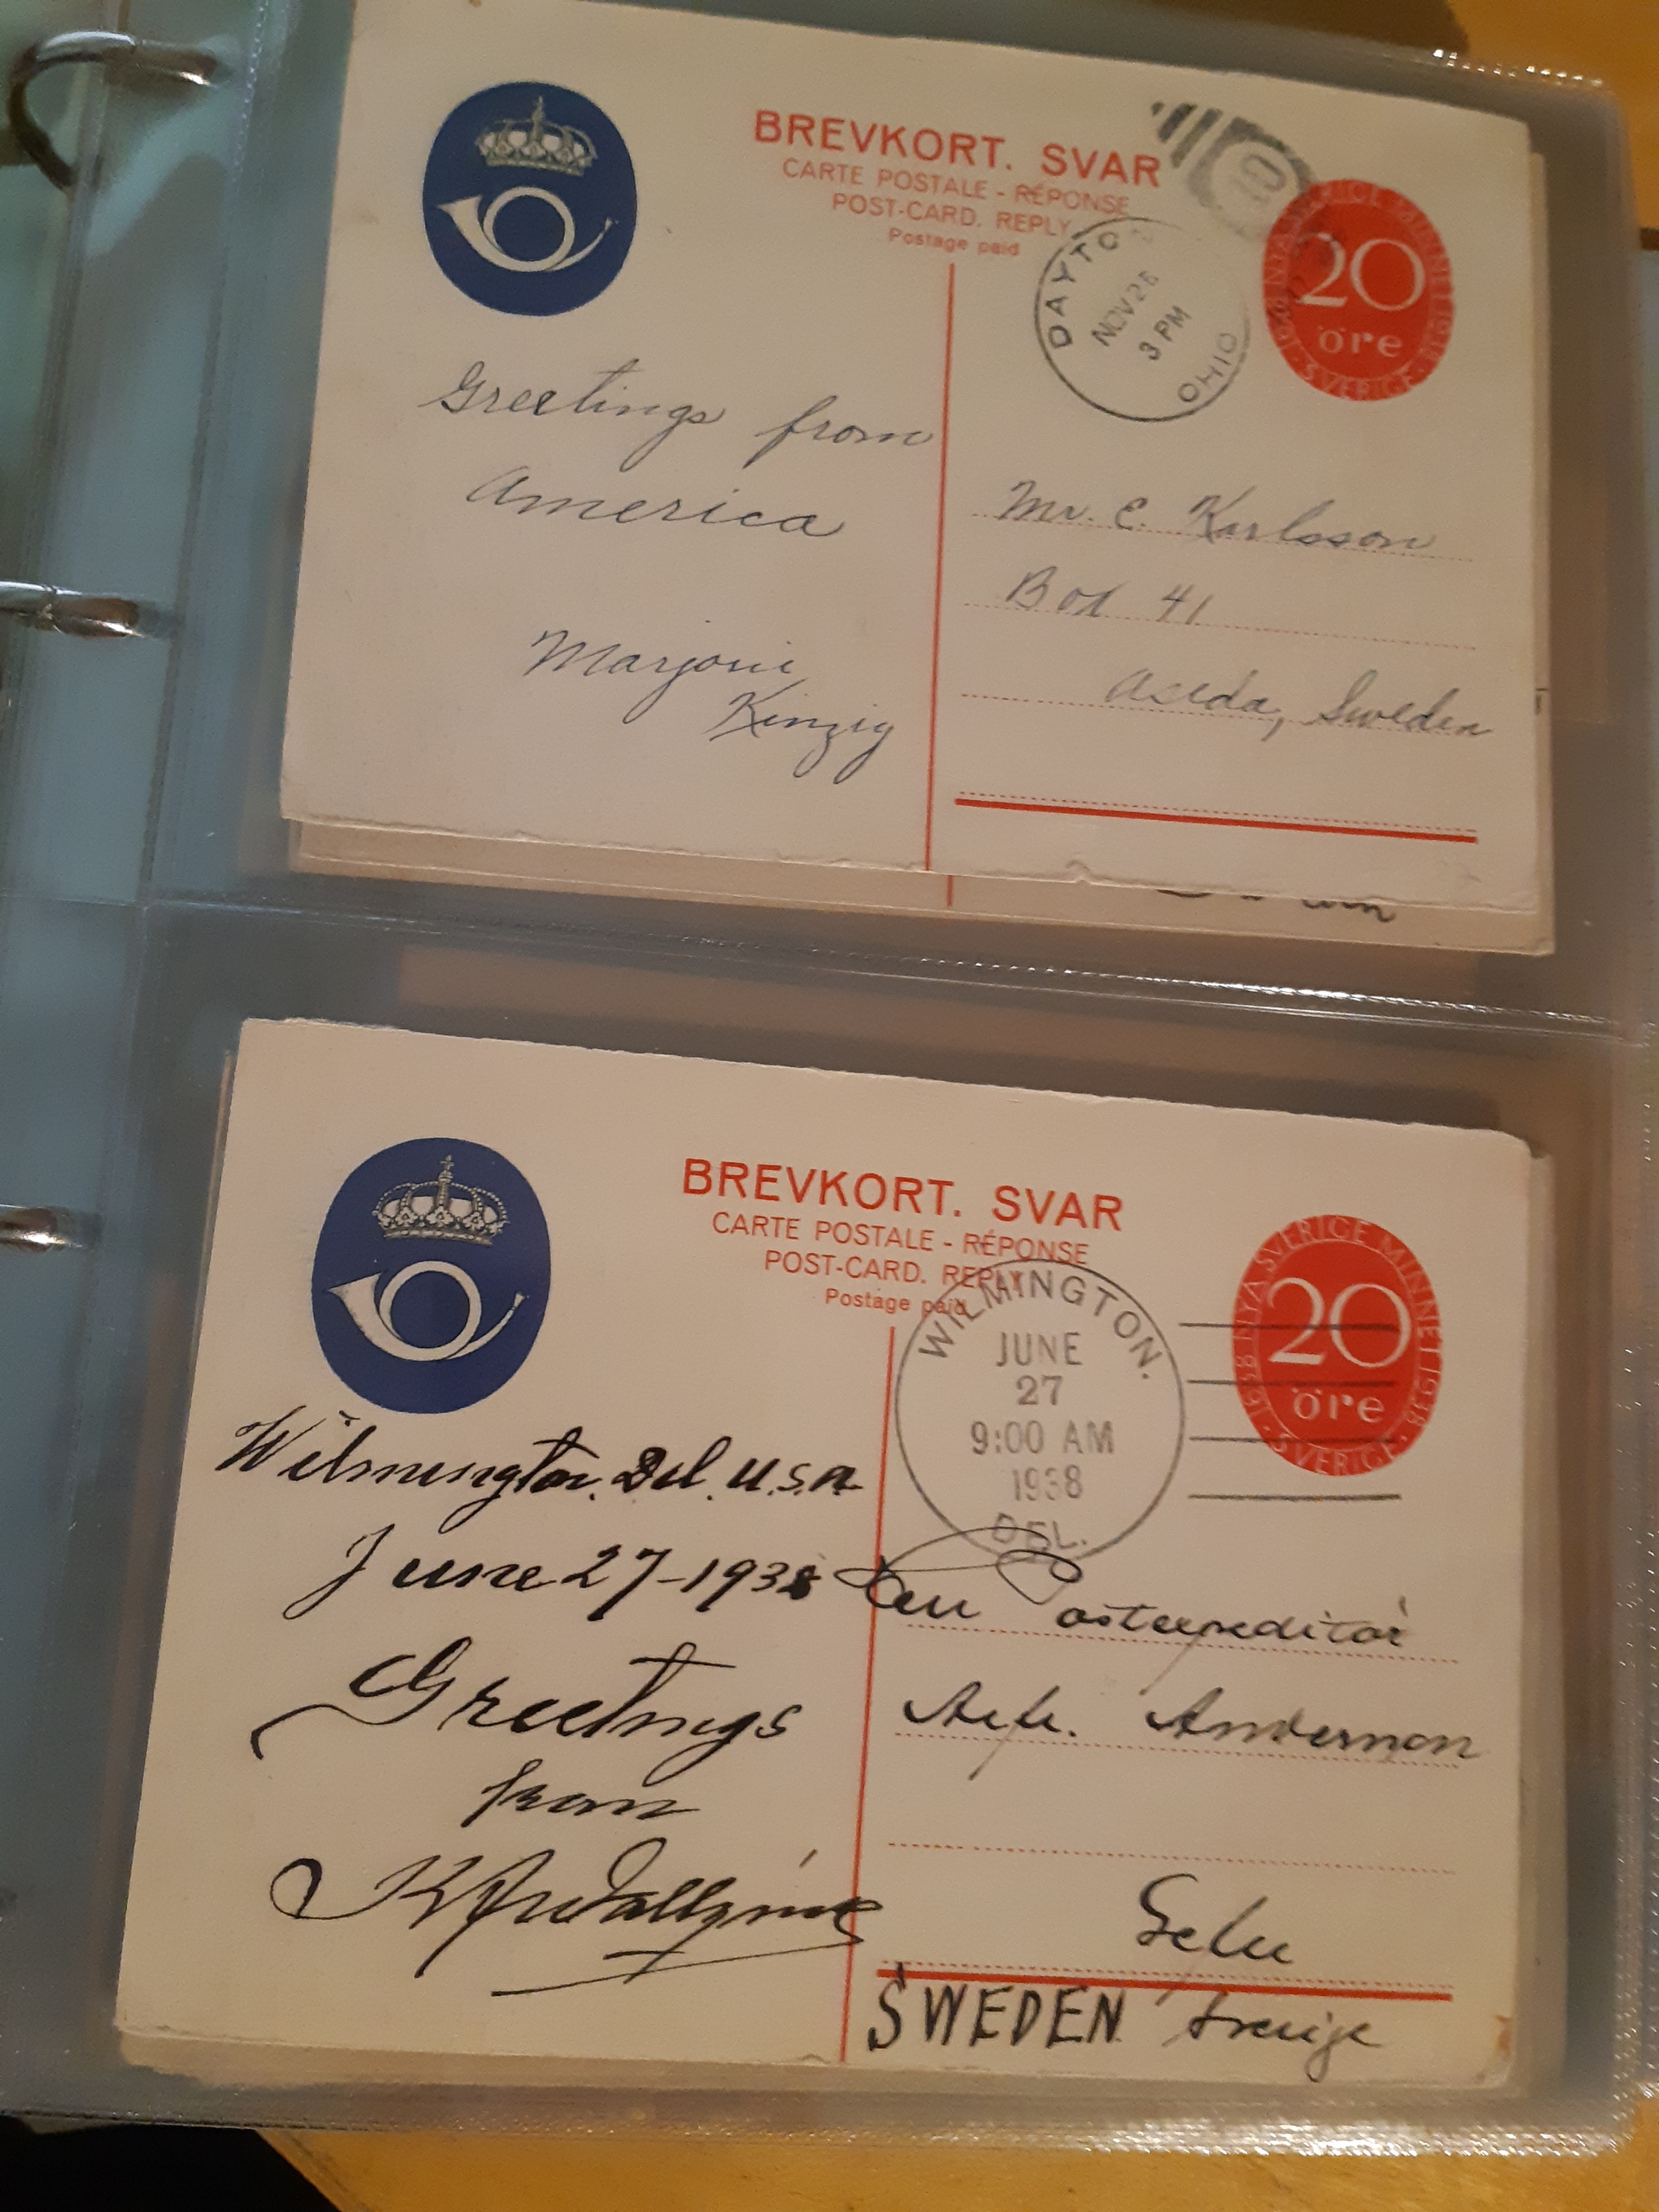 BREVKORT. SVAR
CARTE POSTALE - RÉPONSE
POST-CARD. REPLY
Postage paid
10
DAYTON
NOV 26
3 PM
OHIO
NYA SVERIGE MINNET 1938
20
öre
SVERIGE
Greetings from
America
Marjorie
Kinzig
Mr. C. Karlsson
Box 41
Aseda, Sweden
BREVKORT. SVAR
CARTE POSTALE - RÉPONSE
POST-CARD. REPLY
Postage paid
WILMINGTON.
JUNE
27
9:00 AM
1938
DEL.
1638 NYA SVERIGE MINNET 1938
20
öre
SVERIGE
Wilmington. Del. U.S.A.
June 27-1938
Greetings
from
Herr Postexpeditör
Andersson
SWEDEN Sverige